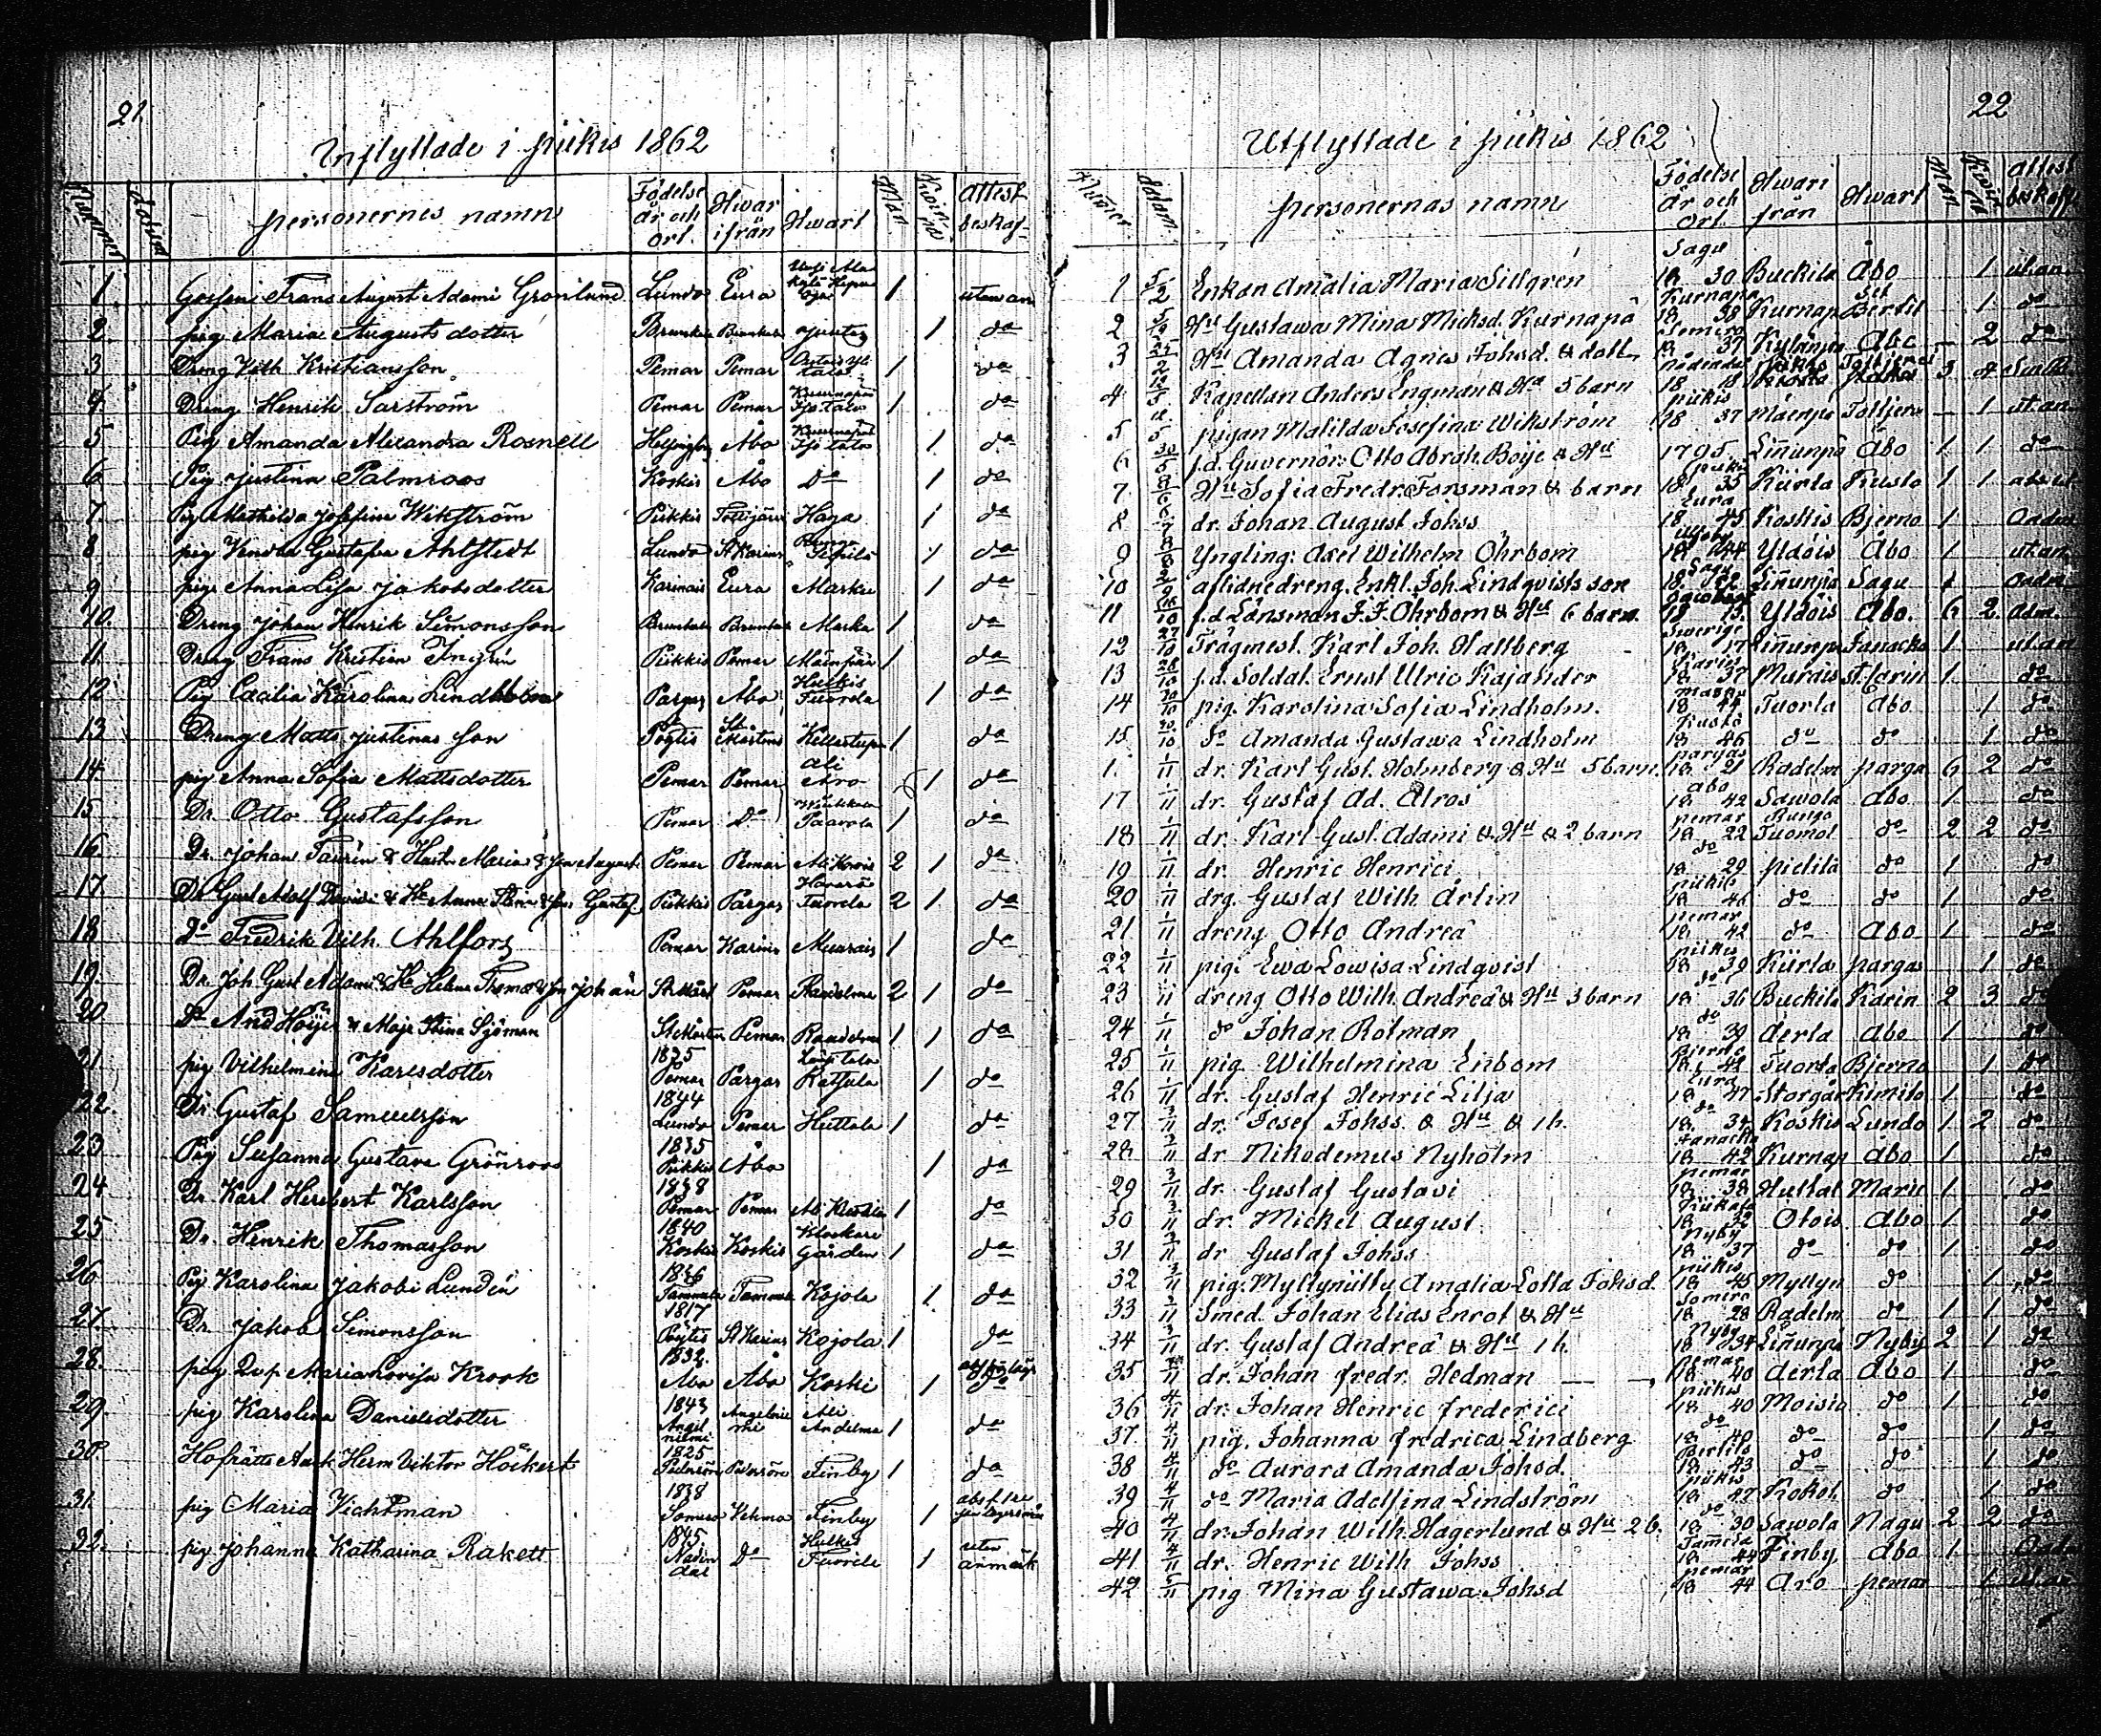 21
Inflyttade i piikis 1862
Nummer datum personernes namn Födelse år och ort. Hwar ifrån Hwart Man Kvinna attest beskaf-
1. Gossen Frans August Adami Grönlund Lundo Eura 1 utan an
2. pig Maria Augusts dotter 1 do
3 Dreng Vilh Kristiansson Pemar Pemar 1 do
4. Dreng Henrik Sarström Pemar Pemar 1 do
5 Pig Amanda Alexandra Rosnell Åbo 1 do
6 Pig Justina Palmroos Koskis Åbo do 1 do
7. Pig Mathilda Josefina Wikström Piikkis Haga 1 do
8 pig Gustafva Ahlstedt Lundo St Karins 1 do
9 pig Anna Lisa Jakobsdotter Karinais Eura Marku 1 do
10. Dreng Johan Henrik Simonsson Marku 1 do
11. Dreng Frans Kristian Ingrén Piikkis Pemar 1 do
12 Pig Cacilia Karolina Lindblom Pargas Åbo Tuorla 1 do
13 Dreng Matts Justinas son Pöytis 1 do
14. pig Anna Sofia Mattsdotter Pemar Pemar Aro 1 do
15 Dr. Otto Gustafsson Pemar do Paavola 1 do
16. Dr. Johan Taurén & Hustr Maria & son August Pemar Pemar 2 1 do
17. Dr Gust Adolf Davidi & Ha Anna Stina & son Gustaf. Piikkis Pargas Tuorla 2 1 do
18 do Fredrik Vilh. Ahlfors Pemar Karins Muurais 1 do
19. Dr. Joh Gust Adami & Ha Helena Thomasd & son Johan Pemar Raadelma 2 1 do
20 Dr And Höijer & Maja Stina Sjöman Pemar Raadelma 1 1 do
21. pig Vilhelmina Karlsdotter 1825 Pemar Pargas Katsula 1 do
22. Dr Gustaf Samuelsson 1844 Lundo Pemar Huttala 1 do
23 Pig Susanna Gustava Grönroos 1835 Piikkis Åbo 1 do
24 Dr. Karl Heribert Karlsson 1838 Pemar Pemar 1 do
25 Dr. Henrik Thomasson 1840 Koskis Koskis Klockare gården 1 do
26 Pig Karolina Jakobi Lundén 1836 Tammela Tammela Kojola 1 do
27. Dr. Jakob Simonsson 1817 Pöytis St Karins Kojola 1 do
28. pig Maria Lovisa Krook 1832. Åbo Åbo Koski 1 do
29. pig Karolina Danielsdotter 1843 Ali Andelma 1 do
30. Hofrätts Ausk Herm Viktor Höckert 1825 Pedersöre Pedersöre Finby 1 do
31. pig Maria Vichtman 1838 Somero Finby 1
32. pig Johanna Katharina Rakett 1845 Nådendal do 1 utan anmärk
22
Utflyttade i piikis 1862
Numer datum personernas namn Födelse År och Ort. Hwari från Hwart Man Kvinna attest beskaff
1 5/2 Enkan Amalia Maria Sillgren Sagu 18 30 Buckila Åbo 1 utan
2 Hu Gustawa Mina Michsd. Kurnapä 18 38 Kurnap 1 do
3 Hu Amanda Agnes Johsd. & dott Somero 18 37 Åbo 2 do
4 Kapellan Anders Engman & Ha 5 barn 18 18 3 4
5 pigan Matilda Josefina Wikström piikis 18 37 1 utan
6 30/5 f.d. Guvernör: Otto Abrah. Boije & Hu 1795 Liñunpä Åbo 1 1 do
7 Hu Sofia Fredr. Forsman & barn 18 35 Kiirla Kusto 1 1
8 dr. Johan August Johss Eura 18 45 Koskis Bjerno 1
9 Yngling: Axel Wilhelm Öhrbom 18 44 Yldöis Åbo 1 utan
10 aflidne dreng. Enkl. Joh. Lindqvists son Sagu 18 Liñunpä Sagu 1
11 f.d Länsman J. F. Öhrbom & Hu 6 barn. 18 13. Yldöis Åbo. 6 2
12 27/10 Trägmest. Karl Joh. Hallberg Swerige 18 17 Liñunp Janacka 1 utan
13 28/10 f.d. Soldat. Ernst Ulric Kajander Karins 18 37 Murais St. Carin 1 do
14 30/10 pig. Karolina Sofia Lindholm. Masku 18 44 Tuorla Åbo 1 do
15 30/10 do Amanda Gustawa Lindholm Kustö 18 46 do do 1 do
1. 1/11 dr. Karl Gust. Holmberg & Hu 5 barn. Pargas 18 21 Radelm parga 6 2 do
17 1/11 dr. Gustaf Ad. Alros Åbo 18 42 Sawola Åbo 1 do
18 1/11 dr. Karl Gust. Adami & Hu & 2 barn pemar 18 22 Tuomol do 2 2 do
19 1/11 dr. Henric Henrici do 18 29 pietilä do 1 do
20 1/11 drg. Gustaf Wilh Arlin piikis 18 46 do do 1 do
21 1/11 dreng Otto Andreä pemar 18 42 do Åbo 1 do
22 1/11 pig. Ewa Lowisa Lindqvist piikis 18 39 Kiirla pargas 1 do
23 1/11 dreng Otto Wilh. Andreä & Hu 3 barn do 18 36 Buckila Karin 2 3 do
24 1/11 do Johan Rotman do 18 39 Aerla Åbo 1 do
25 1/11 pig. Wilhelmina Enbom Bjerno 18 42 Tuorla Bjerno 1 do
26 1/11 dr. Gustaf Henric Lilja Eura 18 47 Storgår Kimito 1 do
27 3/11 dr. Josef Johss. & Hu & 1 b. do 18 34 Koskis Lundo 1 2 do
28 3/11 dr Nikodemus Nyholm Janacka 18 42 Kurnap Åbo 1 do
29 3/11 dr. Gustaf Gustavi pemar 18 38 Huttal Marie 1 do
30 3/11 dr. Mickel August. 18 39 Otois Åbo 1 do
31 3/11 dr Gustaf Johss Nyby 18 37 do do 1 do
32 3/11 pig. Myllymitty Amalia Lotta Johsd. piikis 18 45 Myllyn do 1 do
33 3/11 Smed. Johan Elias Enrot & Hu Somero 18 28 Radelm do 1 1 do
34 3/11 dr. Gustaf Andreä & Hu 1 b. Nyby 18 34 Liñunpä Nyby 2 1 do
35 dr. Johan fredr. Hedman Pemar 18 40 Aerla Åbo 1 do
36 4/11 dr. Johan Henric frederici piikis 18 40 Moisio do 1 do
37 4/11 pig. Johanna fredrica Lindberg do 18 40 do do 1 do
38 4/11 do Aurora Amanda Johsd. 18 43 do do 1 do
39 4/11 do Maria Adelfina Lindström piikis 18 47 do 1 do
40 4/11 dr. Johan Wilh. Hagerlund & Hu 2 b. do 18 30 Sawola Nagu 2 2 do
41 4/11 dr. Henric Wilh Johss 18 44 Finby Åbo 1
42 5/11 pig Mina Gustawa Johsd pemar 18 44 Aro pemar 1 utan